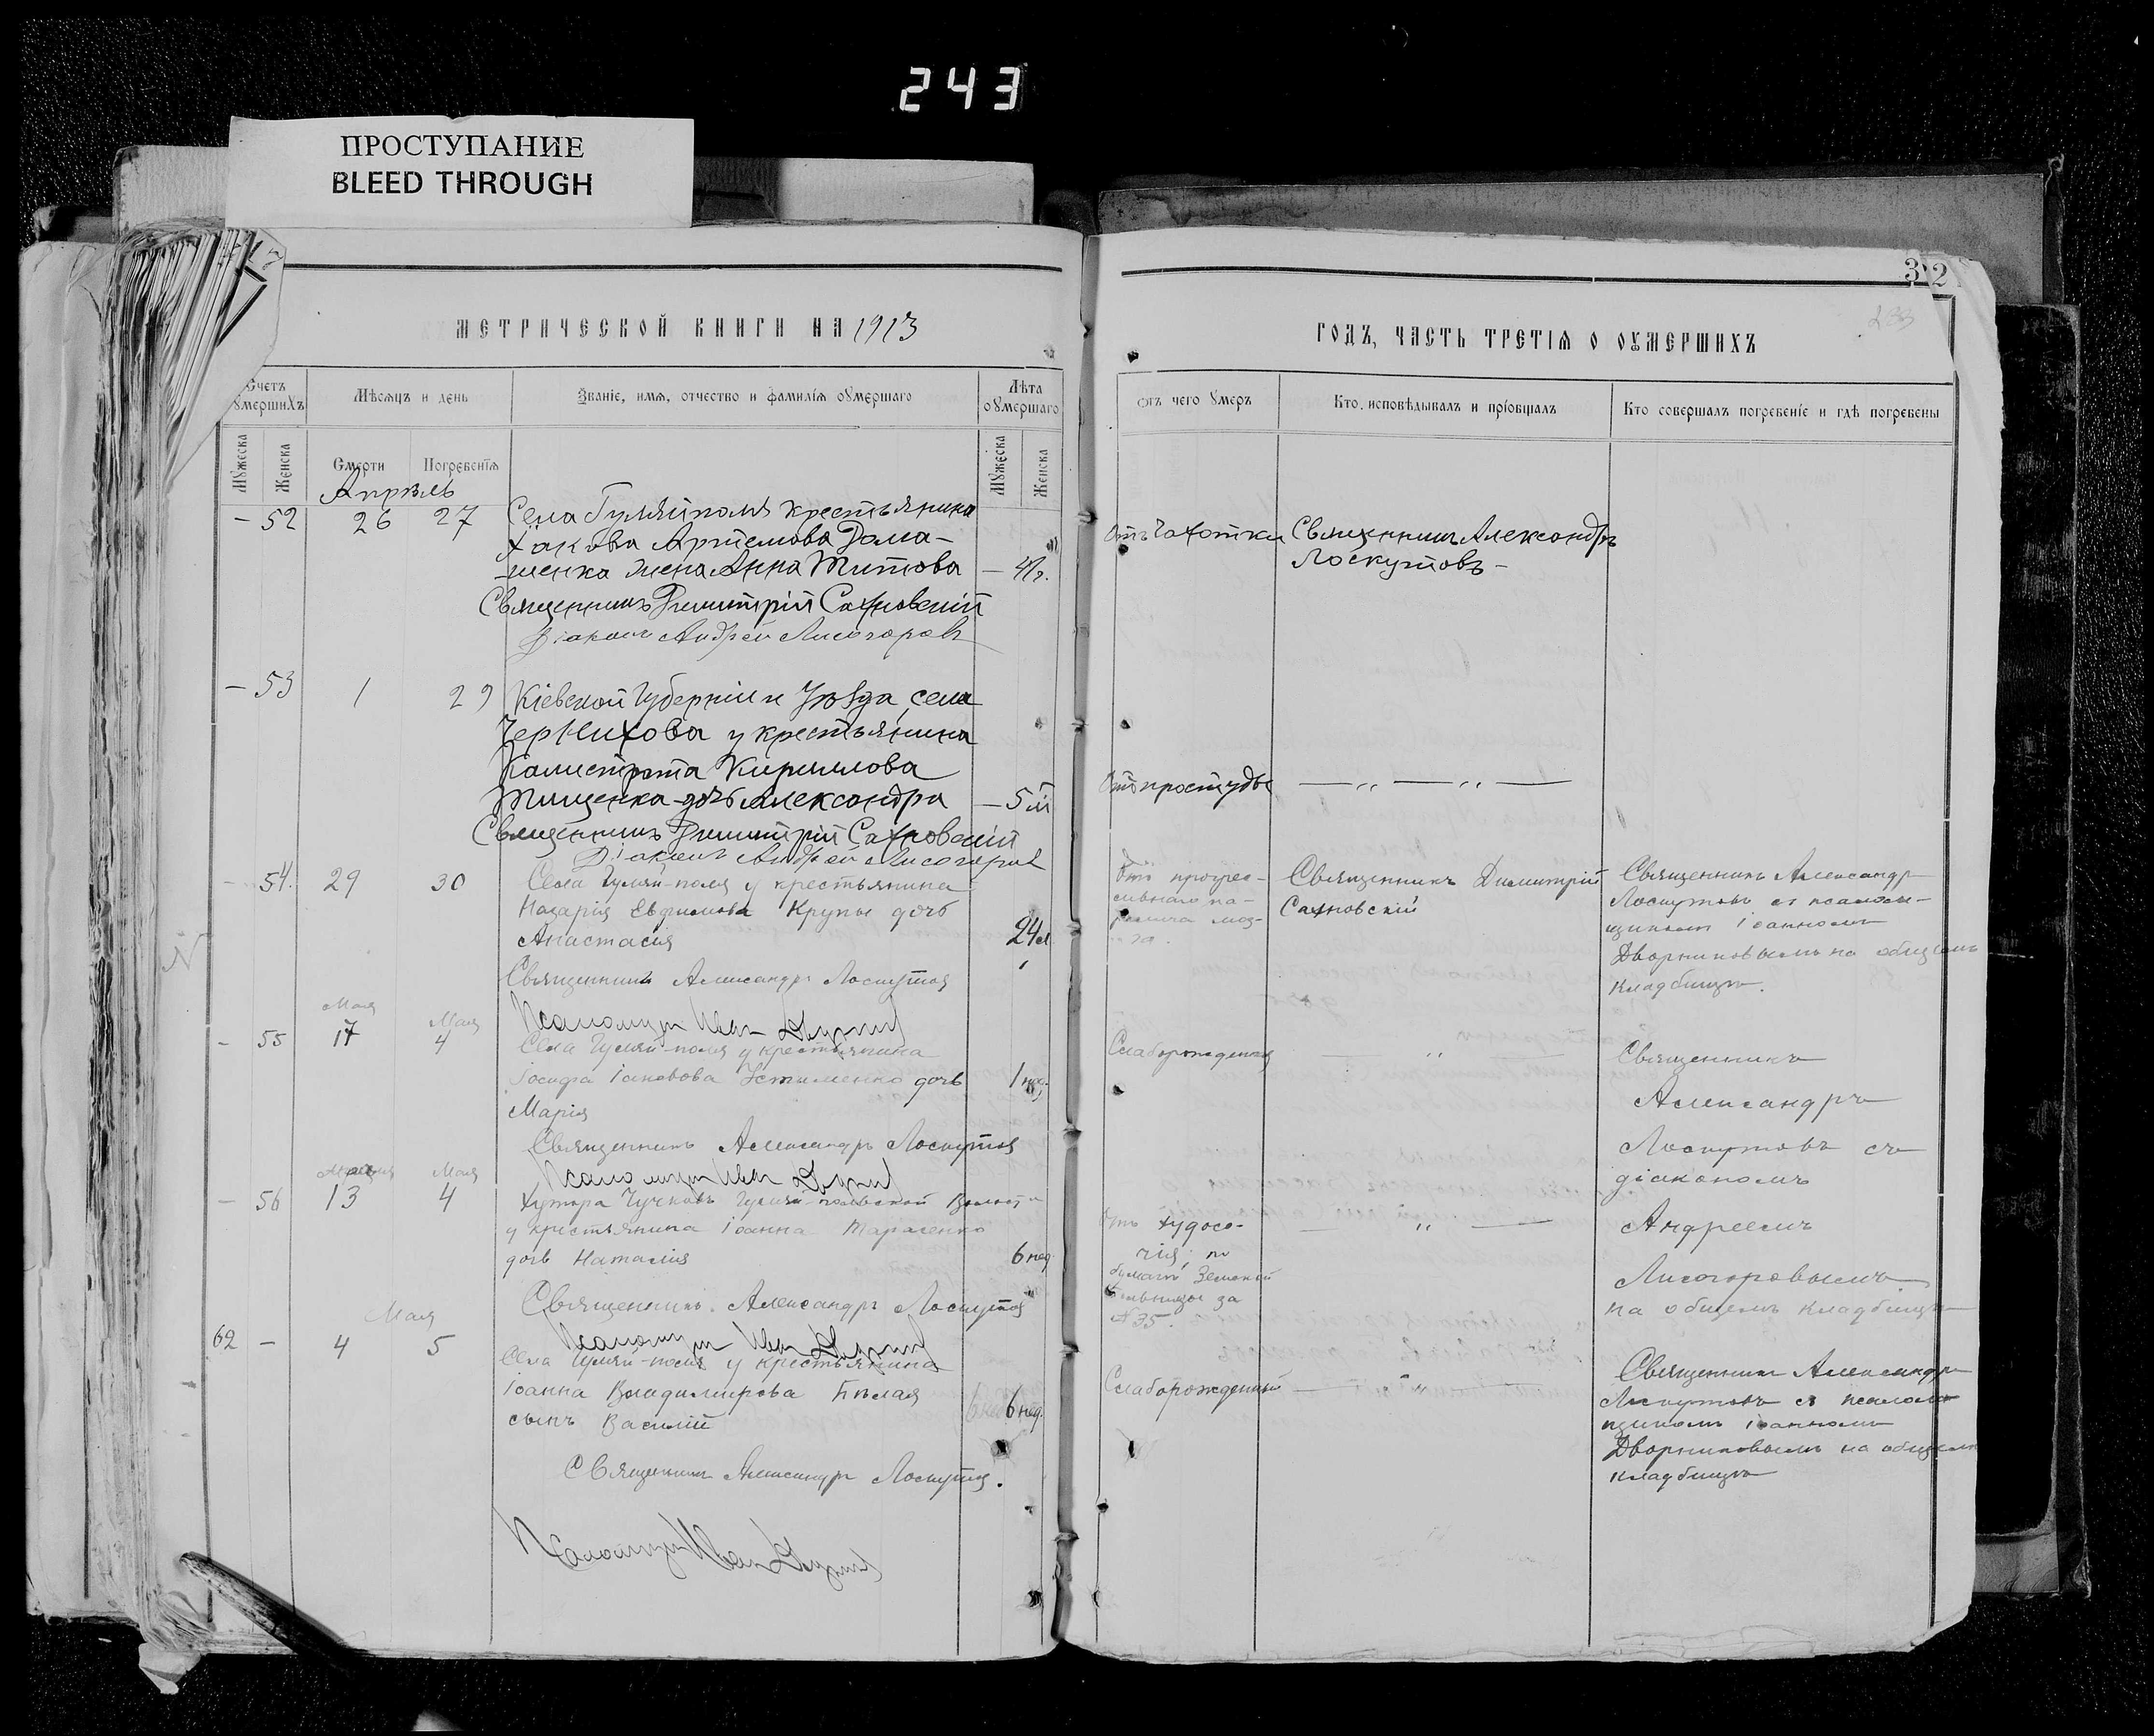 243
ПРОСТУПАНИЕ
BLEED THROUGH
МЕТРИЧЕСКОЙ КНИГИ НА 1913
Счетъ умершихъ
Мѣсяцъ и день
Званіе, имя, отчество и фамилія умершаго
Лѣта умершаго
Мужеска
Женска
Смерти
Погребенія
Мужеска
Женска
Апрѣль
— 52 26 27 Села Гуляйполя крестьянина
Іакова Артемова Дома-
-шенка жена Анна Титова —
Священникъ Димитрій Сахновскій
Діаконъ Андрей Лисогоровъ
— 53 1 29 Кіевской Губерніи и Уѣзда, села
Чернихова у крестьянина
Калистрата Кириллова
Тищенка дочь Александра — 5 м
Священникъ Димитрій Сахновскій
Діаконъ Андрей Лисогоровъ
— 54. 29 30 Села Гуляй-поля у крестьянина
Назарія Евфимова Крупы дочь
Анастасія 24
Священникъ Александръ Лоскутовъ
Мая Мая
Псаломщ Иван
- 55 17 4 Села Гуляй-поля у крестьянина
Іосифа Іаковова Устименко дочь 1 нед.
Марія
Священникъ Александръ Лоскутовъ
Мая
Псаломщ Иван
— 56 13 4 Хутора Гуляй-польской Волости
у крестьянина Іоанна Тарасенко
дочь Наталія 6 нед
Священникъ Александръ Лоскутовъ
Мая
Псаломщ Иван
62 — 4 5 Села Гуляй-поля у крестьянина
Іоанна Владимирова Бѣлая
сынъ Василій 6 нед.
Священникъ Александръ Лоскутовъ.
Псаломщ Иван
32
ГОДЪ, ЧАСТЬ ТРЕТІЯ О УМЕРШИХЪ
отъ чего умеръ
Кто исповѣдывалъ и пріобщалъ
Кто совершалъ погребеніе и гдѣ погребены
Отъ Чахотки Священникъ Александръ
Лоскутовъ —
Отъ простуды — „ — „ —
Отъ прогрес- Священникъ Димитрій Священникъ Александръ
сивнаго па- Сахновскій Лоскутовъ съ псалом-
ралича моз- щикомъ Іоанномъ
га. Дворниковымъ на общемъ
кладбищѣ.
Слаборожденная — „ — Священникъ
Александръ
Лоскутовъ съ
діакономъ
Отъ худосо- — „ — Андреемъ
чія; по
бумагѣ Земской Лисогоровымъ
больницы за на общемъ кладбищѣ
№ 35.
Слаборожденный — „ — Священникъ Александръ
Лоскутовъ съ псалом-
щикомъ Іоанномъ
Дворниковымъ на общемъ
кладбищѣ